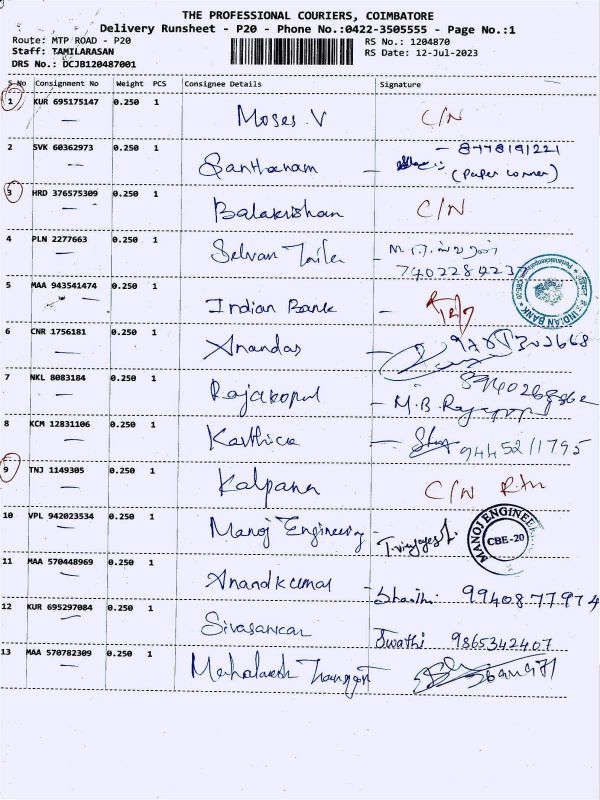 THE PROFESSIONAL COURIERS, COIMBATORE
Delivery Runsheet - P20 - Phone No.:0422-3505555 - Page No.:1
Route: MTP ROAD - P20
RS No.: 1204870
Staff: TAMILARASAN
RS Date: 12-Jul-2023
DRS No.: DCJB120487001
S No Consignment No Weight PCS Consignee Details Signature
1 KUR 695175147 0.250 1 Moses. V C/N
2 SVK 60362973 0.250 1 Santhanam - 8778191221
(Paper corner)
3 HRD 376575309 0.250 1 Balakrishan C/N
4 PLN 2277663 0.250 1 Selvan Tailer
7702284237
5 MAA 943541474 0.250 1 Indian Bank -
INDIAN BANK
6 CNR 1756181 0.250 1 Anandas -
7 NKL 8083184 0.250 1 Rajakopal - M.B. Rajagopal
8 KCM 12831106 0.250 1 Karthica - 9445211795
9 TNJ 1149305 0.250 1 Kalpana C/N Rtn
10 VPL 942023534 0.250 1 Manoj Engineering -
MANOJ ENGINEE
CBE-20
11 MAA 570448969 0.250 1 Anandkumar - Shanthi 9940877974
12 KUR 695297084 0.250 1 Sivasankar Swathi 9865342407
13 MAA 570782309 0.250 1